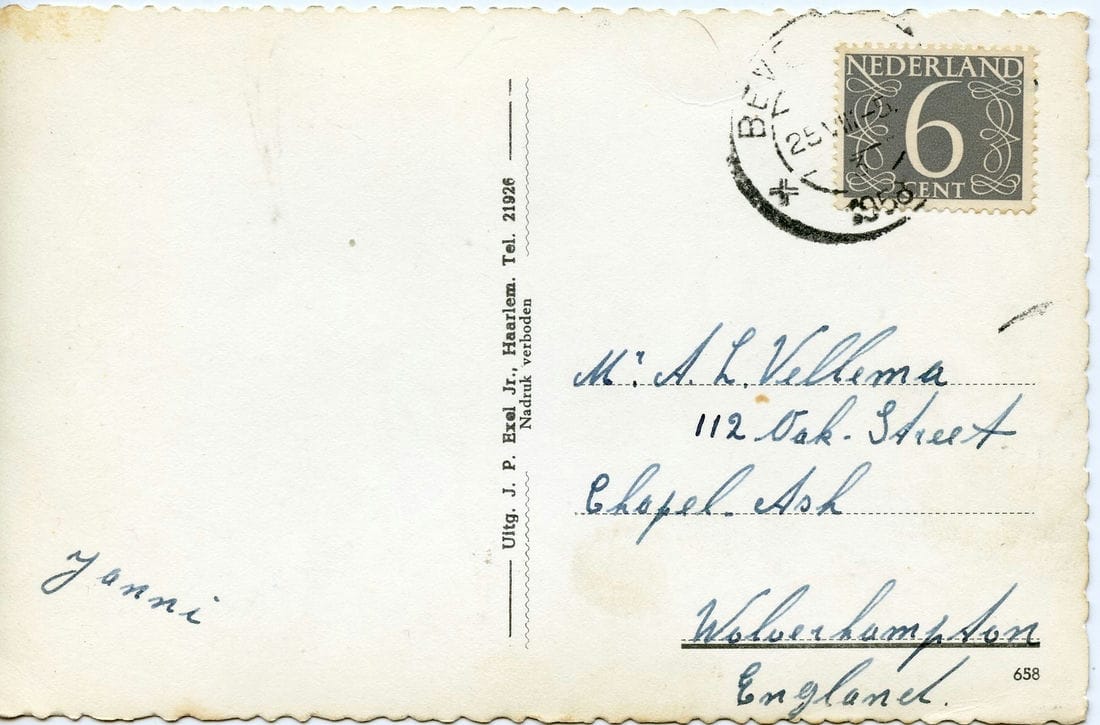 Janni
Uitg. J. P. Exel Jr., Haarlem. Tel. 21926
Nadruk verboden
25 VIII
1958
NEDERLAND
6
CENT
Mr. A. L. Vellema
112 Oak. Street
Chapel. Ash
Wolverhampton
England.
658